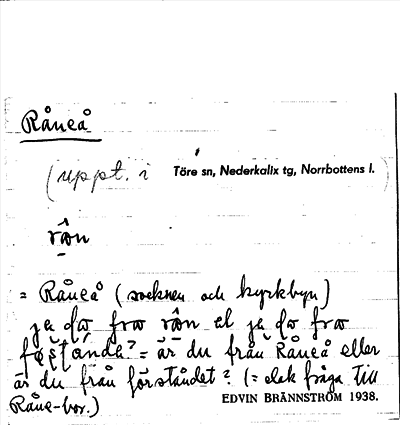 Råneå
(uppt. i Töre sn, Nederkalix tg, Norrbottens l.)
rån
= Råneå (socknen och kyrkbyn)
ja do fro rån el ja do fro
festande? = är du från Råneå eller
är du från förståndet? (= elak fråga till
Råne-bor.)
EDVIN BRÄNNSTRÖM 1938.